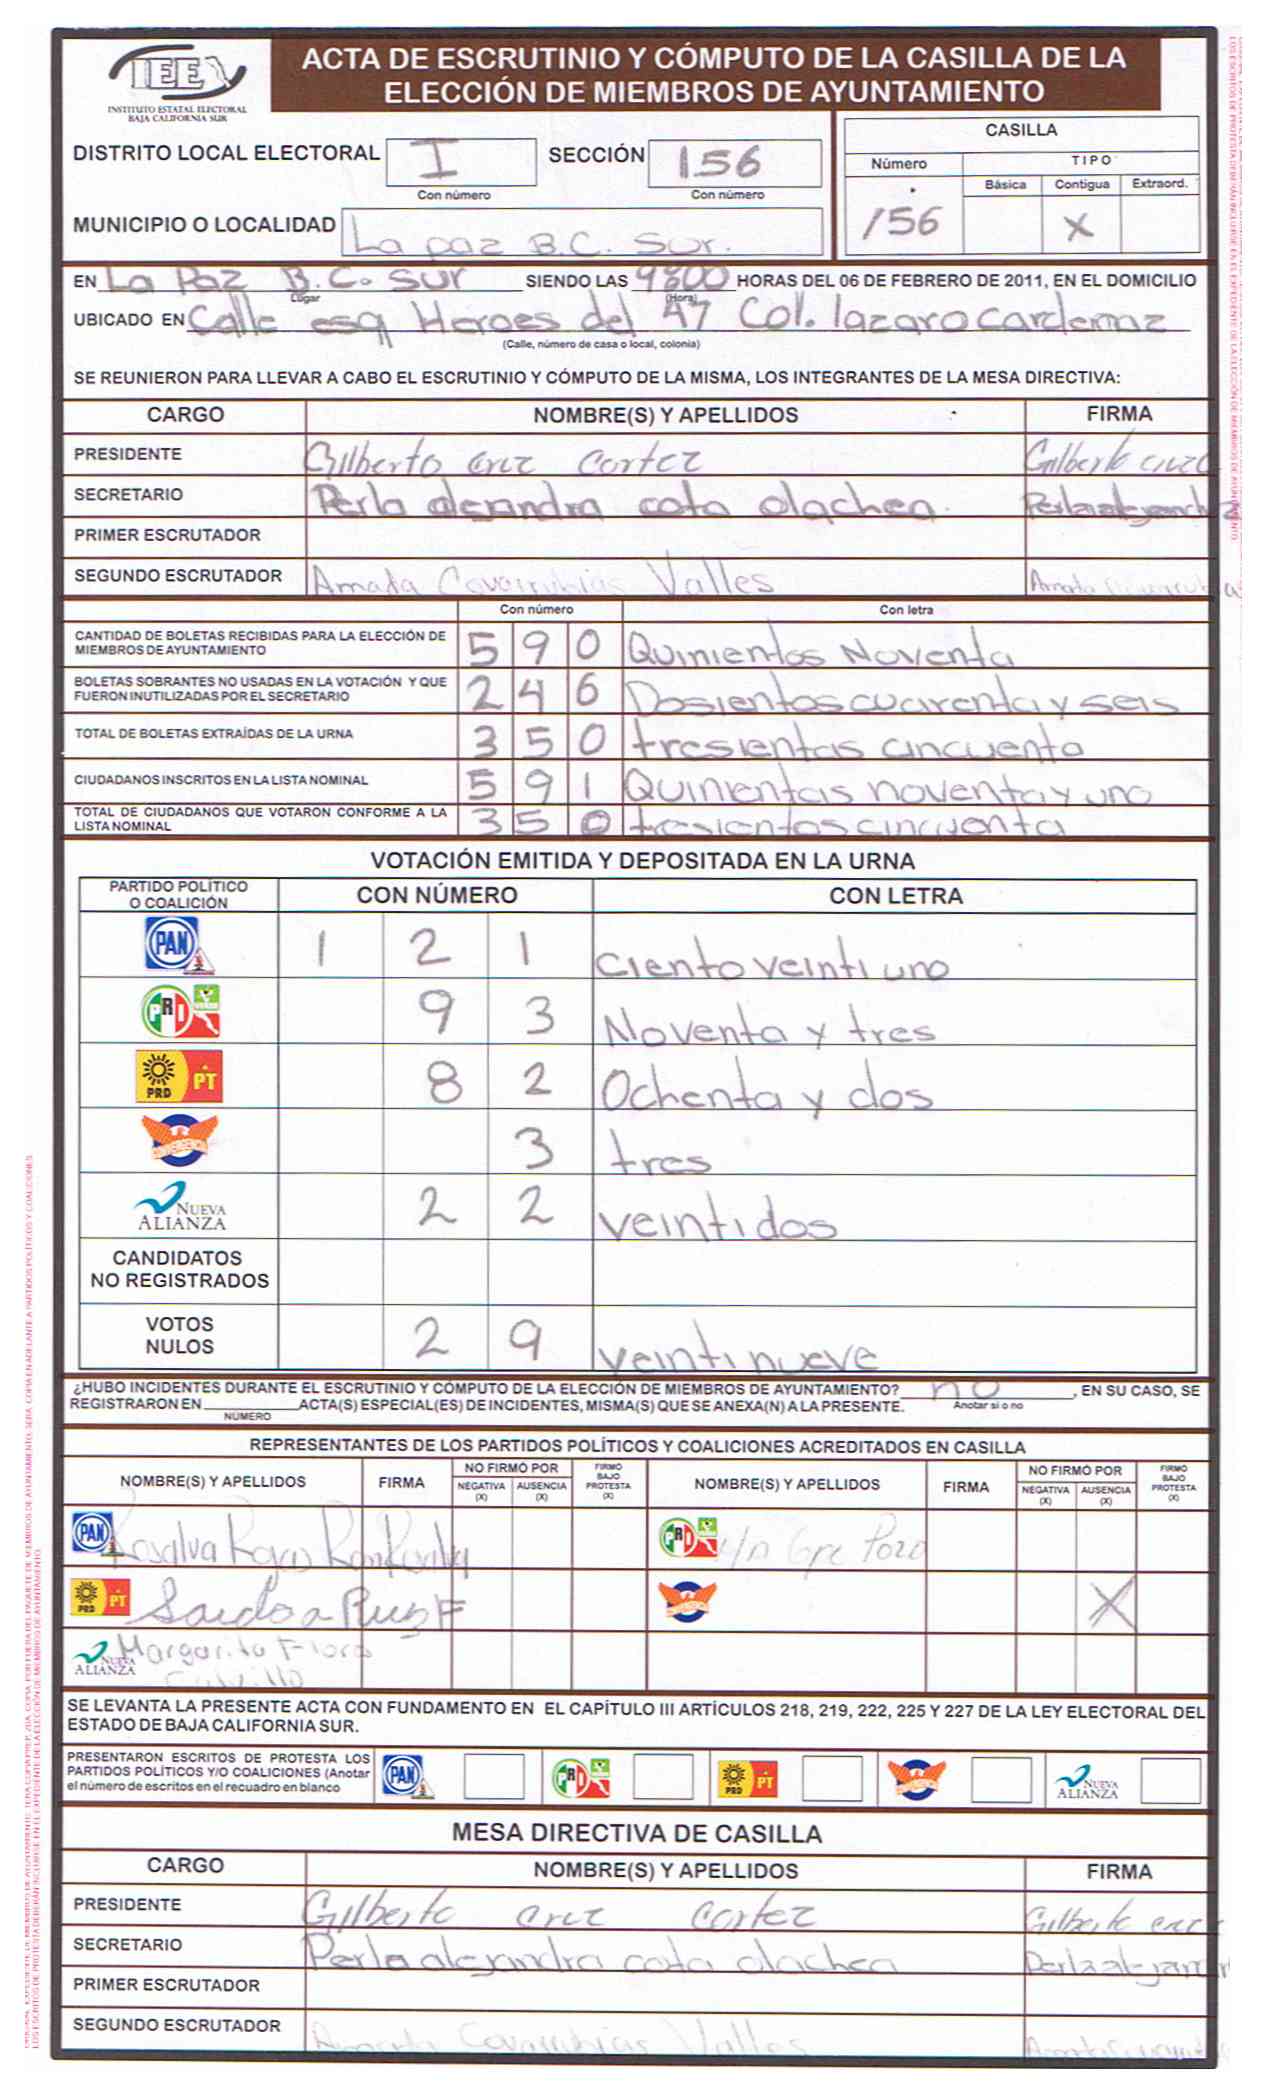 IEE
INSTITUTO ESTATAL ELECTORAL
BAJA CALIFORNIA SUR
ACTA DE ESCRUTINIO Y CÓMPUTO DE LA CASILLA DE LA
ELECCIÓN DE MIEMBROS DE AYUNTAMIENTO
DISTRITO LOCAL ELECTORAL I SECCIÓN 156
Con número Con número
MUNICIPIO O LOCALIDAD La paz B.C. Sur.
CASILLA
Número TIPO
Básica Contigua Extraord.
156 X
EN La Paz B.C. Sur SIENDO LAS 9800 HORAS DEL 06 DE FEBRERO DE 2011, EN EL DOMICILIO
Lugar (Hora)
UBICADO EN Calle esq Heroes del 47 Col. lazaro cardenaz
(Calle, número de casa o local, colonia)
SE REUNIERON PARA LLEVAR A CABO EL ESCRUTINIO Y CÓMPUTO DE LA MISMA, LOS INTEGRANTES DE LA MESA DIRECTIVA:
CARGO NOMBRE(S) Y APELLIDOS FIRMA
PRESIDENTE Gilberto cruz cortez Gilberto cruz
SECRETARIO Perla alejandra cota olachea
PRIMER ESCRUTADOR
SEGUNDO ESCRUTADOR Amada Covarrubias Valles
Con número Con letra
CANTIDAD DE BOLETAS RECIBIDAS PARA LA ELECCIÓN DE
MIEMBROS DE AYUNTAMIENTO 590 Quinientos Noventa
BOLETAS SOBRANTES NO USADAS EN LA VOTACIÓN Y QUE
FUERON INUTILIZADAS POR EL SECRETARIO 246 Dosientos cuarenta y seis
TOTAL DE BOLETAS EXTRAÍDAS DE LA URNA 350 tresientas cincuenta
CIUDADANOS INSCRITOS EN LA LISTA NOMINAL 591 Quinientas noventa y uno
TOTAL DE CIUDADANOS QUE VOTARON CONFORME A LA
LISTA NOMINAL 350 tresientos cincuenta
VOTACIÓN EMITIDA Y DEPOSITADA EN LA URNA
PARTIDO POLÍTICO
O COALICIÓN CON NÚMERO CON LETRA
PAN 1 2 1 ciento veinti uno
PRI VERDE 9 3 Noventa y tres
PRD PT 8 2 Ochenta y dos
CONVERGENCIA 3 tres
NUEVA ALIANZA 2 2 veintidos
CANDIDATOS
NO REGISTRADOS
VOTOS
NULOS 2 9 veintinueve
¿HUBO INCIDENTES DURANTE EL ESCRUTINIO Y CÓMPUTO DE LA ELECCIÓN DE MIEMBROS DE AYUNTAMIENTO? no , EN SU CASO, SE
REGISTRARON EN ACTA(S) ESPECIAL(ES) DE INCIDENTES, MISMA(S) QUE SE ANEXA(N) A LA PRESENTE. Anotar si o no
NÚMERO
REPRESENTANTES DE LOS PARTIDOS POLÍTICOS Y COALICIONES ACREDITADOS EN CASILLA
NOMBRE(S) Y APELLIDOS FIRMA NO FIRMÓ POR NEGATIVA (X) AUSENCIA (X) FIRMÓ BAJO PROTESTA (X) NOMBRE(S) Y APELLIDOS FIRMA NO FIRMÓ POR NEGATIVA (X) AUSENCIA (X) FIRMÓ BAJO PROTESTA (X)
PAN Rosalva PRI VERDE Gpe Pozo
PRD PT CONVERGENCIA X
NUEVA ALIANZA Margarita Flores
SE LEVANTA LA PRESENTE ACTA CON FUNDAMENTO EN EL CAPÍTULO III ARTÍCULOS 218, 219, 222, 225 Y 227 DE LA LEY ELECTORAL DEL
ESTADO DE BAJA CALIFORNIA SUR.
PRESENTARON ESCRITOS DE PROTESTA LOS
PARTIDOS POLÍTICOS Y/O COALICIONES (Anotar
el número de escritos en el recuadro en blanco
PAN PRI VERDE PRD PT CONVERGENCIA NUEVA ALIANZA
MESA DIRECTIVA DE CASILLA
CARGO NOMBRE(S) Y APELLIDOS FIRMA
PRESIDENTE Gilberto cruz cortez Gilberto cruz
SECRETARIO Perla alejandra cota olachea
PRIMER ESCRUTADOR
SEGUNDO ESCRUTADOR Amada Covarrubias Valles